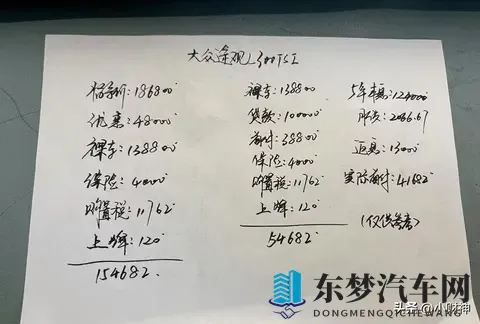 大众途观L300TSI
指导价:186800
优惠:48000
裸车:138800
保险:4000
购置税:11762
上牌:120
154682
裸车:138800
贷款:100000
首付:38800
保险:4000
购置税:11762
上牌:120
54682
5年息:124000
月供:2066.67
返息:13000
实际首付:41682
(仅供参考)
东梦汽车网
DONGMENGQICHEWANG
头条